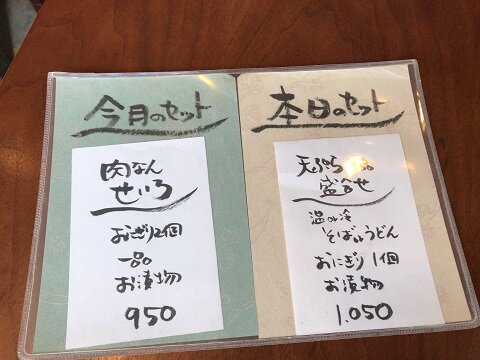 今月のセット
肉なん
せいろ
おにぎり2個
一品
お漬物
950
本日のセット
天ぷら
盛合せ
温or冷
そばorうどん
おにぎり1個
お漬物
1.050